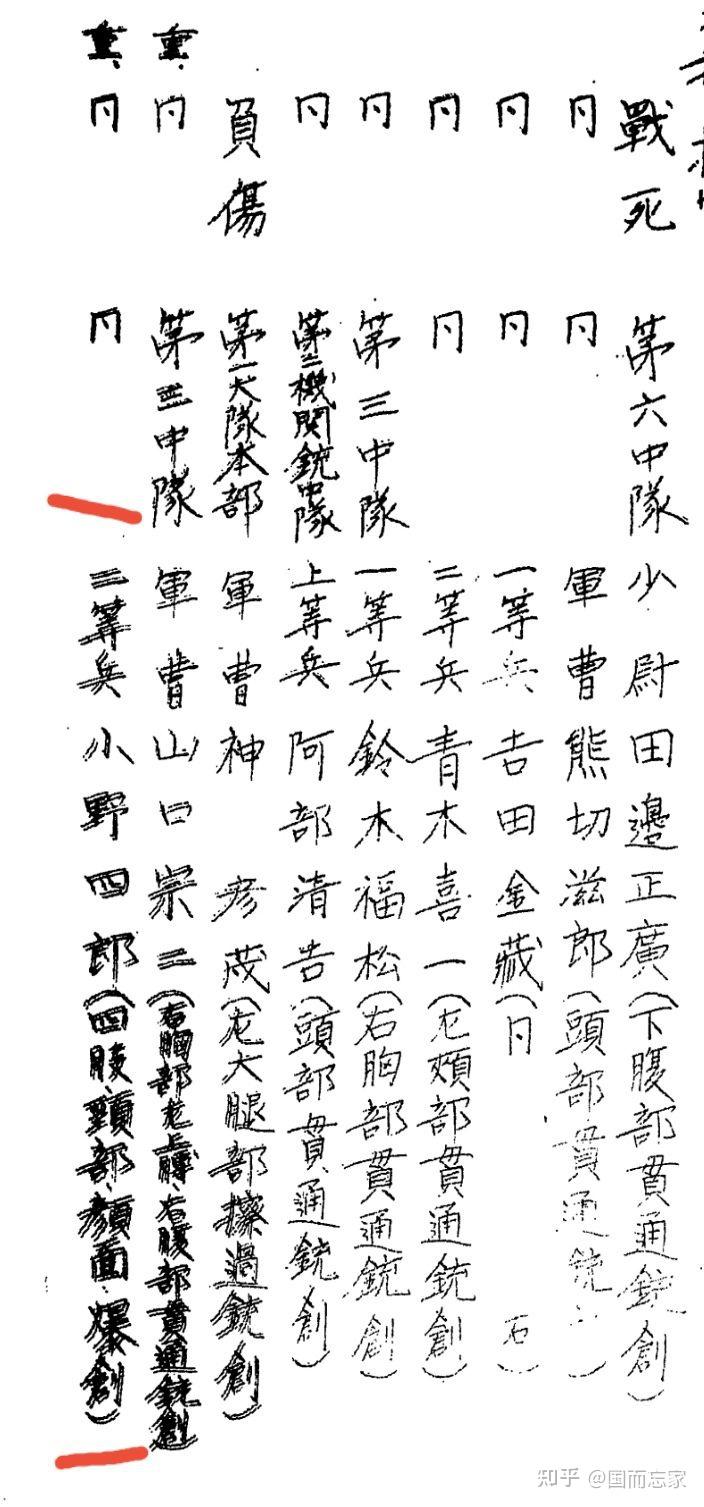 戰死 第六中隊 少尉 田邊正廣(下腹部貫通銃創)
仝 仝 軍曹 熊切滋郎(頭部貫通銃創)
仝 仝 一等兵 吉田金藏(仝 右)
仝 仝 二等兵 青木喜一(左頬部貫通銃創)
仝 第三中隊 一等兵 鈴木福松(右胸部貫通銃創)
仝 第三機関銃中隊 上等兵 阿部清吉(頭部貫通銃創)
負傷 第一大隊本部 軍曹 神 彦茂(左大腿部擦過銃創)
重、仝 第三中隊 軍曹 山口宗二(右胸部左上膊、右腹部貫通銃創
重、仝 仝 二等兵 小野四郎(四肢、頸部、顔面、爆創)
知乎 @国而忘家